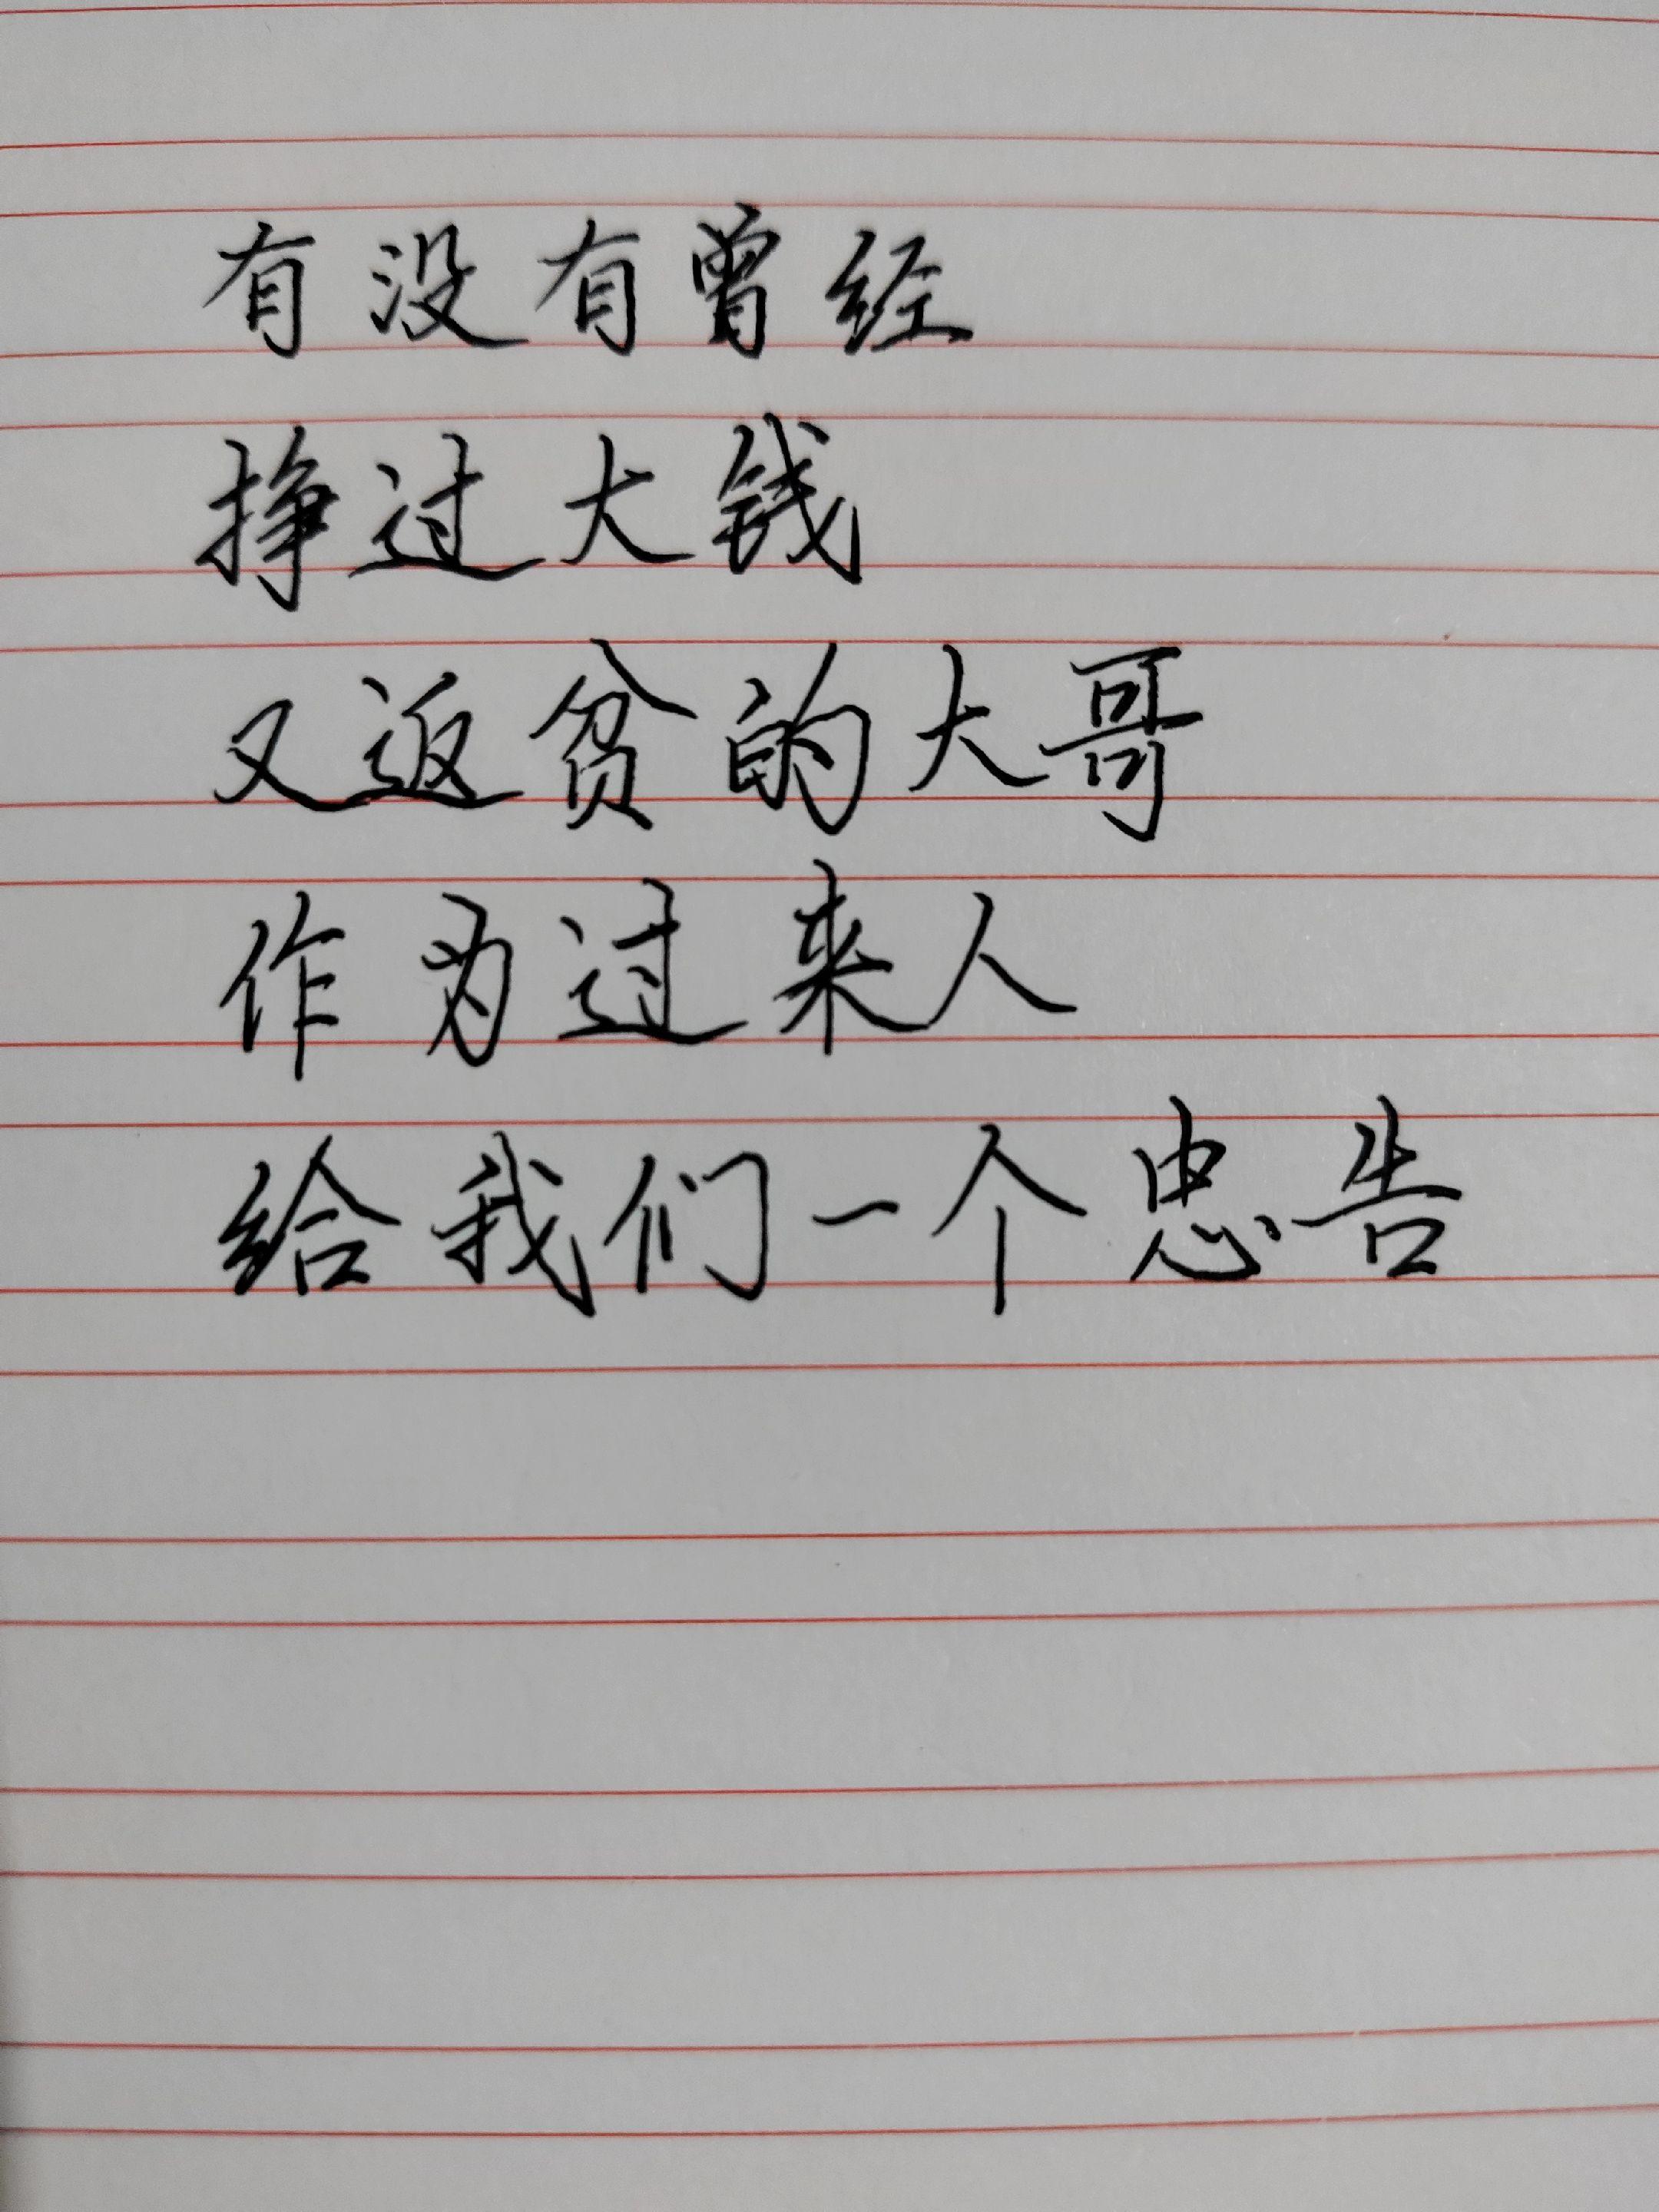 有没有曾经
挣过大钱
又返贫的大哥
作为过来人
给我们一个忠告